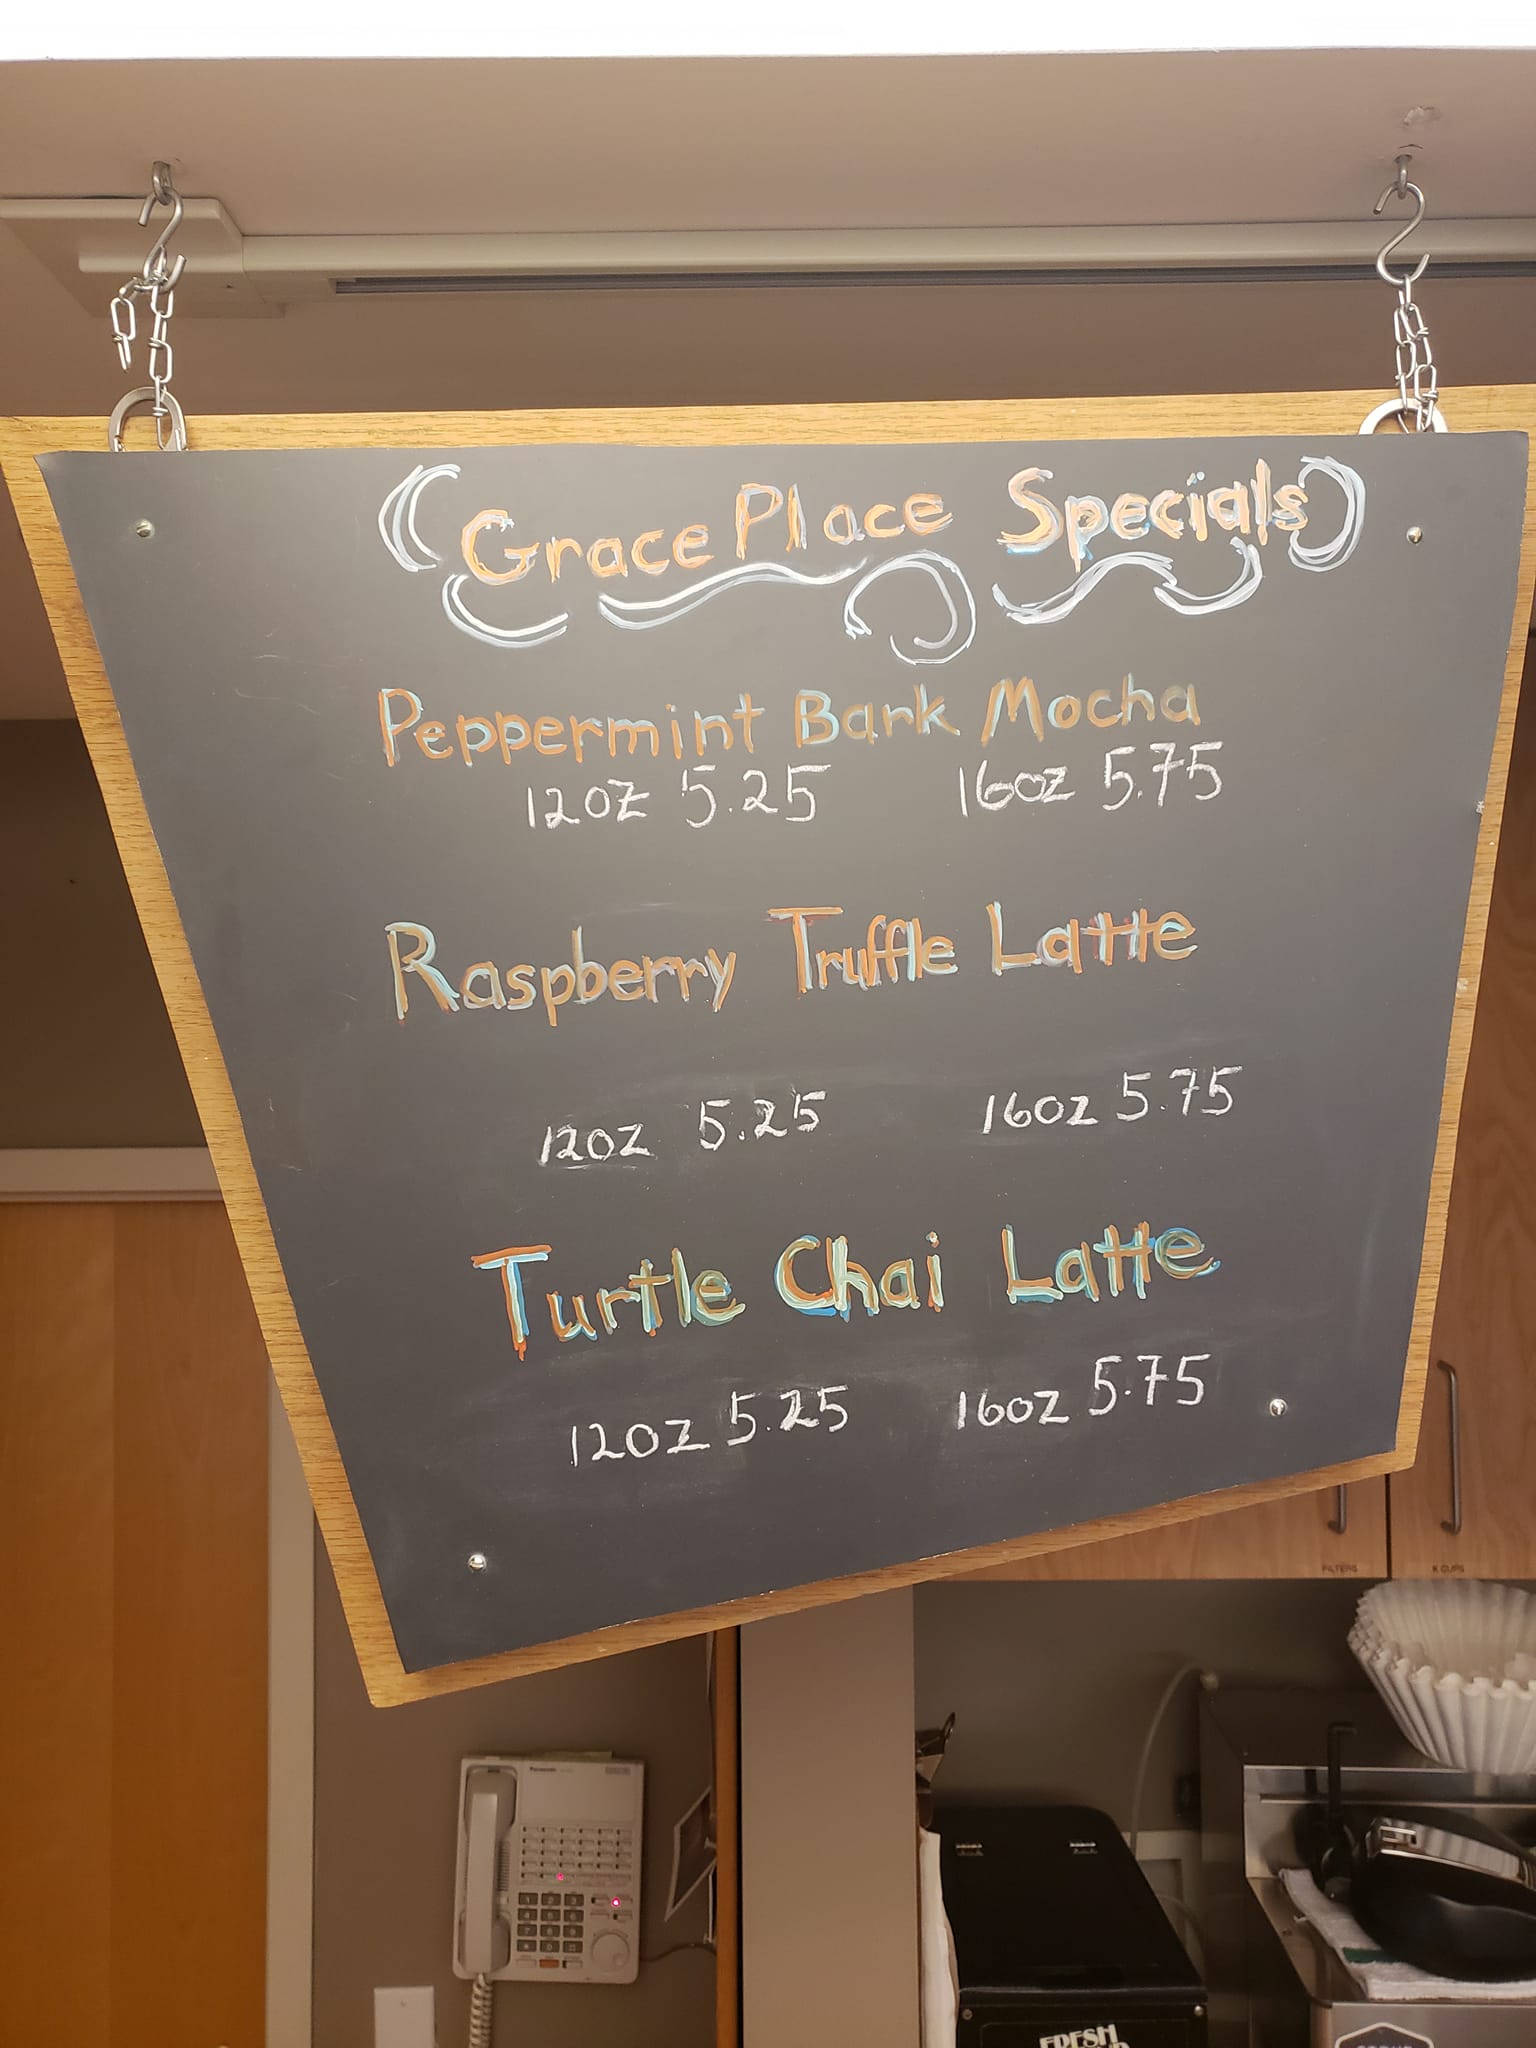 Grace Place Specials
Peppermint Bark Mocha
12oz 5.25 16oz 5.75
Raspberry Truffle Latte
12oz 5.25 16oz 5.75
Turtle Chai Latte
12oz 5.25 16oz 5.75
FILTERS
K CUPS
Panasonic
FRESH